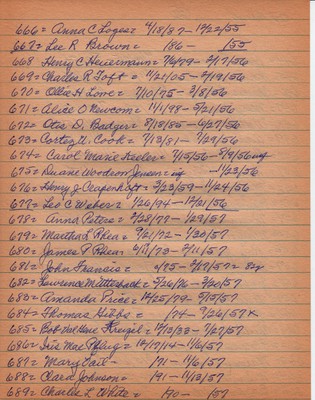 666 = Anna C Logee = 4/18/87 - 12/22/55
667 = Lee R Brown = 186 - 155
668 Henry C Heinemann = 7/6/79 - 2/17/56
669 = Charles R Toft = 11/21/05 - 2/19/56
670 = Ollie H Love = 7/10/75 - 3/8/56
671 = Alice O Newcom = 11/1/98 - 5/21/56
672 = Otis D. Badger = 8/18/85 - 6/27/56
673 = Costez U. Cook = 7/13/91 - 7/29/56
674 = Carol Marie Keeler = 7/15/56 - 8/9/56
675 = Duane Woodrow Jensen = - 11/23/56
676 = Henry J = 3/23/59 - 11/24/56
677 = Leo C Weber = 1/26/94 - 12/21/56
678 = Anna Peters = 2/28/77 - 1/29/57
679 = Martha L Rhea = 9/21/72 - 1/30/57
680 = James P Rhea = 73 - 2/11/57
681 = John Francis = 1/75 - 3/17/57 = 82y
682 = Lawrence Mittlestaedt = 5/26/76 - 3/20/57
683 = Amanda Price = 12/25/79 - 5/15/57
684 = Thomas Hibbs = 174 - 7/26/57 x
685 = Bob 12/13/33 - 7/27/57
686 = Iris Mae Pflug = 12/17/14 - 11/6/57
687 = Mary Vail - 171 - 11/6/57
688 = Clara Johnson = 191 - 11/13/57
689 = Charles L White = 170 - 157